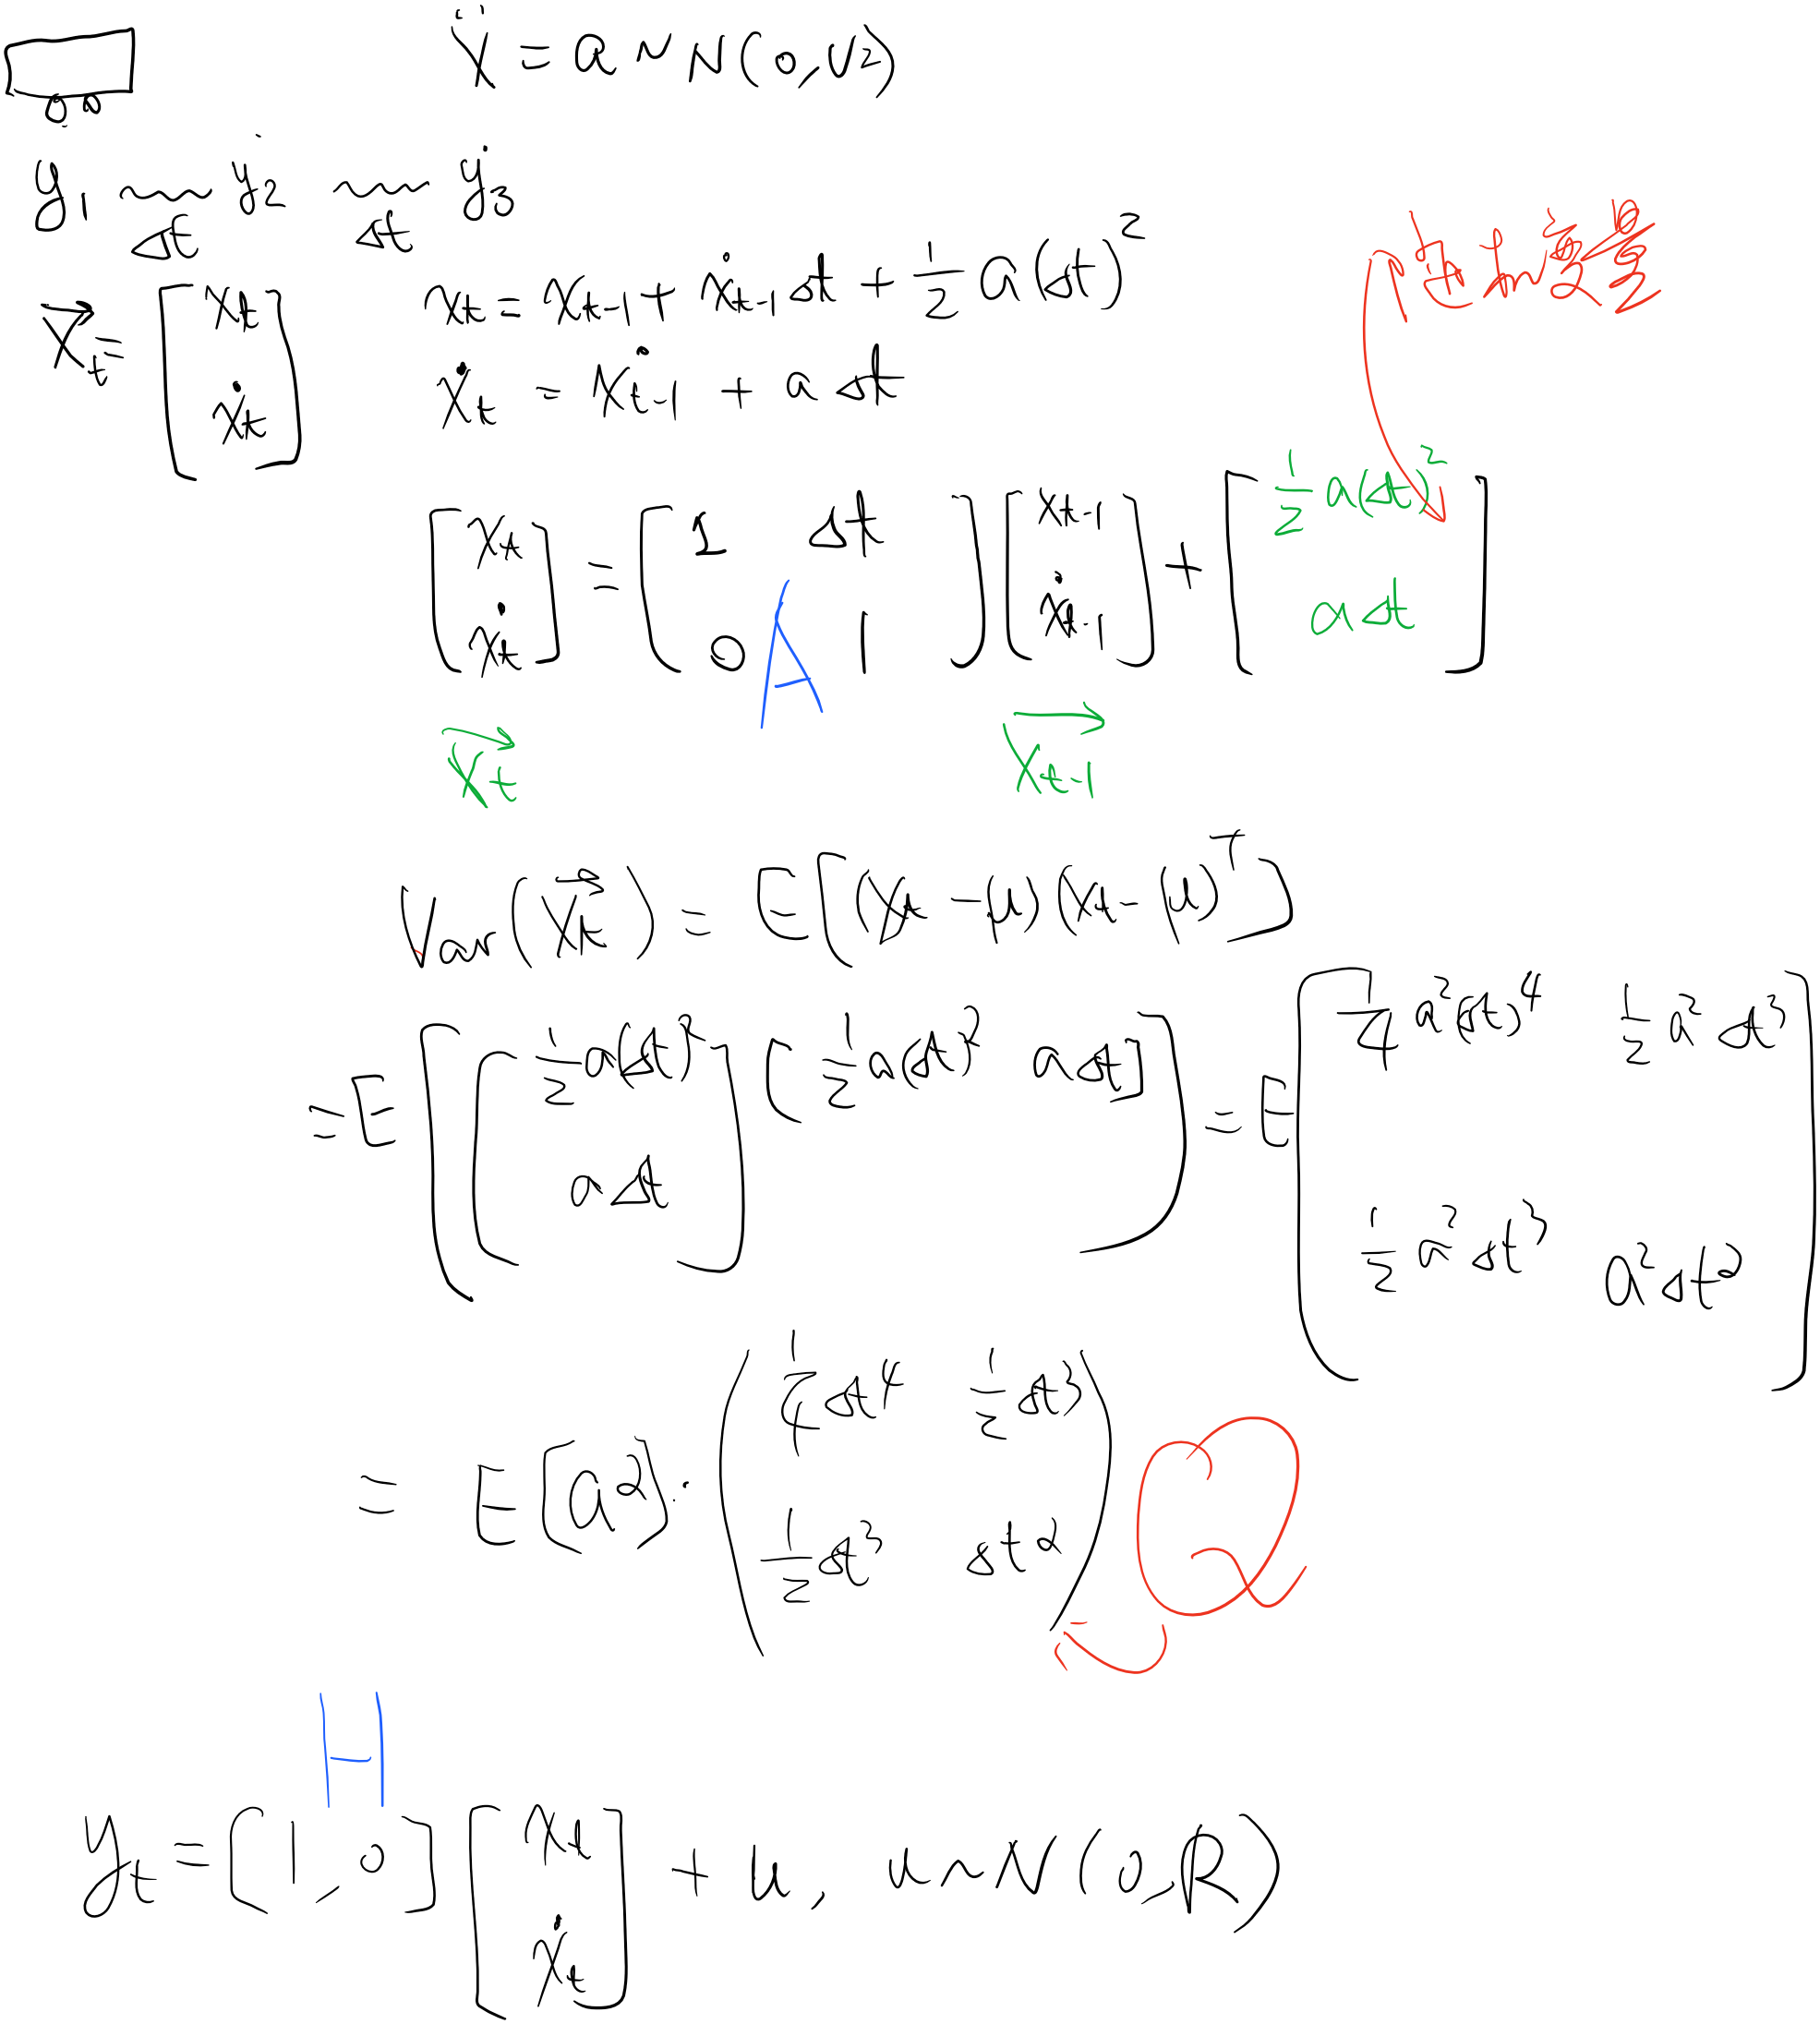 Ẍ = a ~ N(0, σ²)
y₁ ~ y₂ ~ y₃
Δt Δt
X⃗ₜ = [xₜ ẋₜ]
xₜ = xₜ₋₁ + ẋₜ₋₁ Δt + ½ a(Δt)²
ẋₜ = ẋₜ₋₁ + a Δt
[xₜ ẋₜ] = [1 Δt 0 1] [xₜ₋₁ ẋₜ₋₁] + [½ a(Δt)² aΔt]
A
X⃗ₜ X⃗ₜ₋₁
Var(X⃗ₜ) = E[(Xₜ - μ)(Xₜ - μ)ᵀ]
= E[[½ a(Δt)² aΔt] [½ a(Δt)² aΔt]] = E[¼ a²(Δt)⁴ ½ a² Δt³ ½ a² Δt³ a² Δt²]
= E[a²] · (¼ Δt⁴ ½ Δt³ ½ Δt³ Δt²) Q
H
yₜ = [1, 0] [xₜ ẋₜ] + u, u ~ N(0, R)